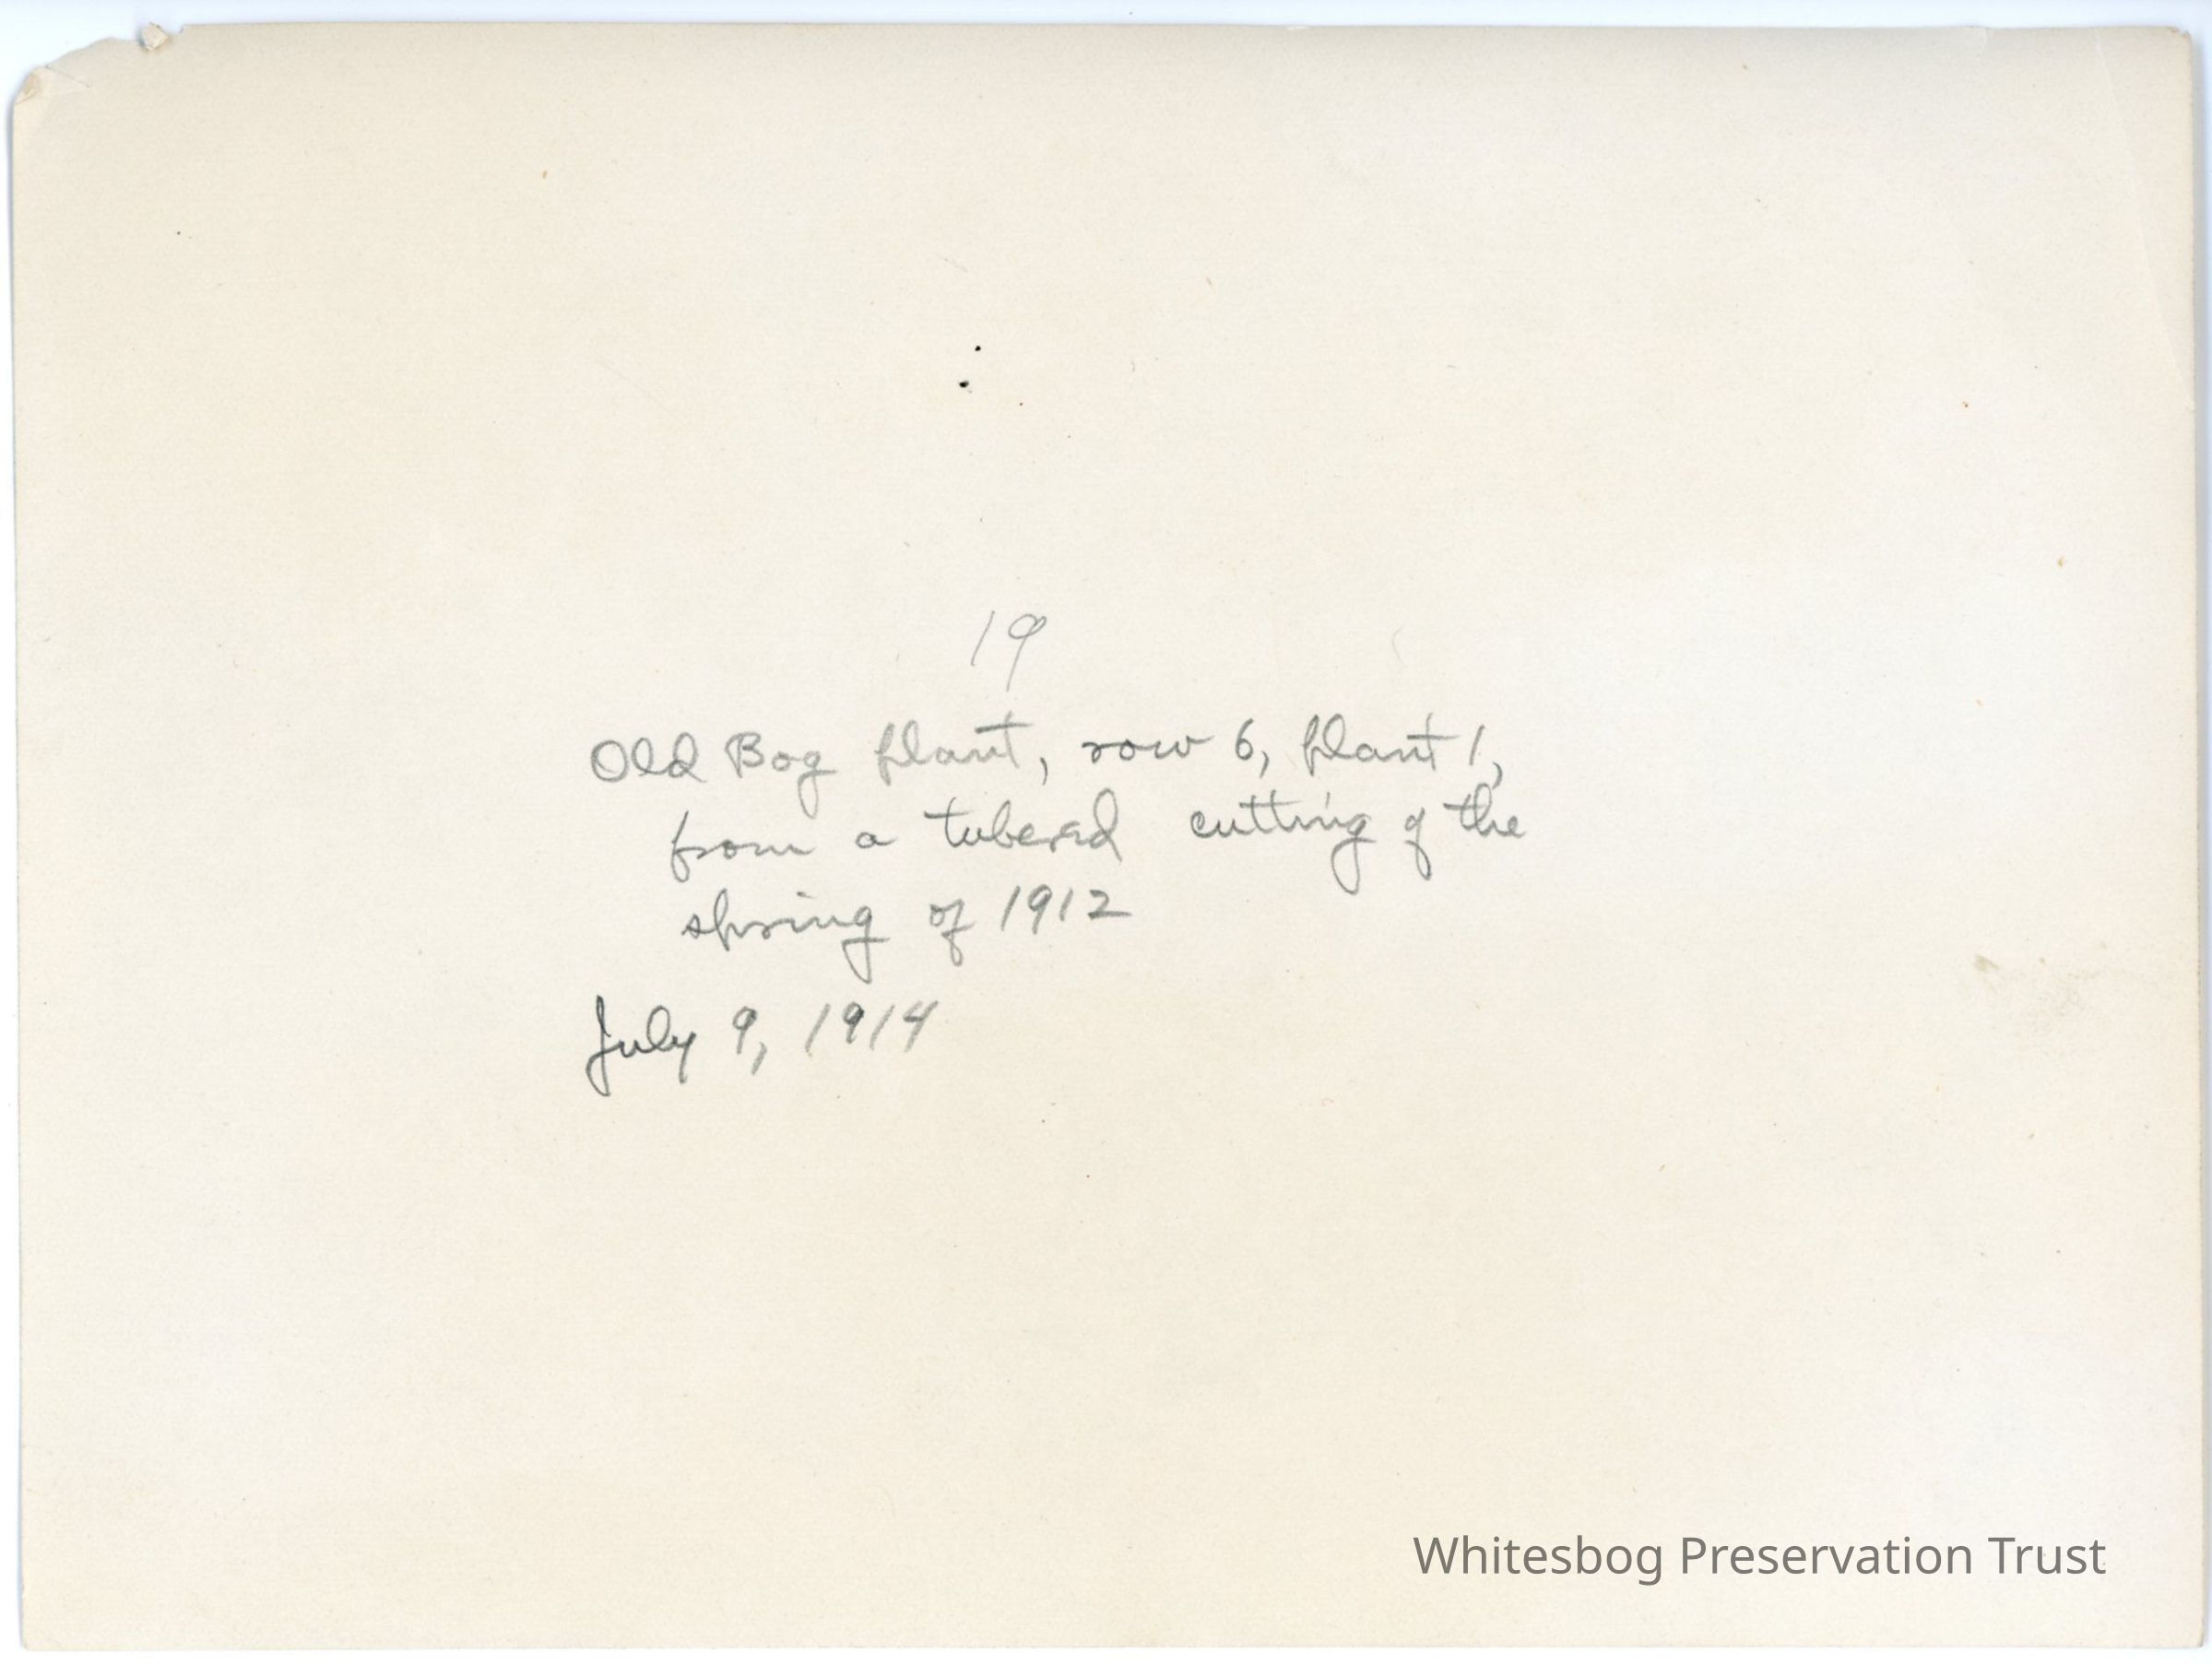 19
Old Bog plant, row 6, plant 1,
from a tubered cutting of the
spring of 1912
July 9, 1914
Whitesbog Preservation Trust